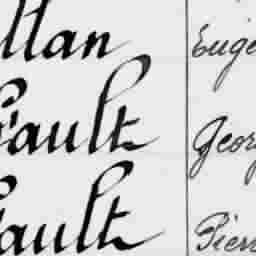 ltan Euge
Gault Georg
Gault Pierr